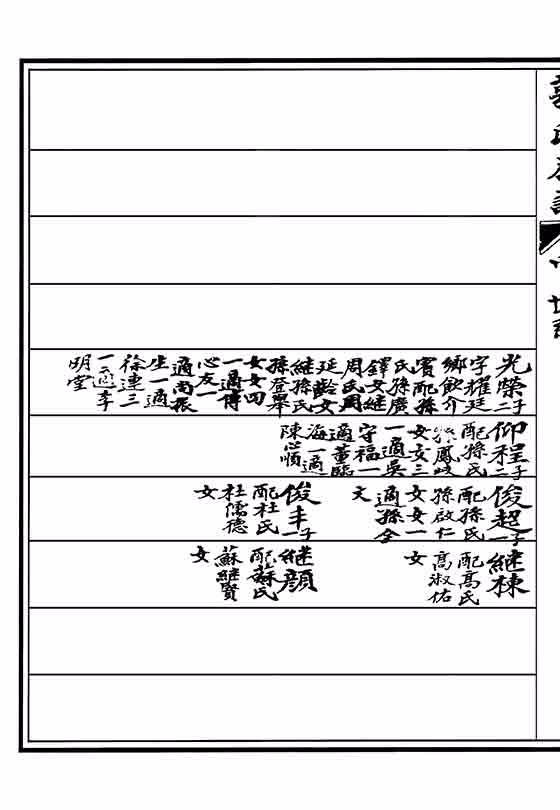 光榮二子
字耀廷
鄉飲介
賓配孫
氏孫廣
鐸女繼
周氏周
延齡女
繼孫氏
孫登舉
女女四
一適傅
心友一
適尚振
生一適
徐連三
一適李
明堂
仰程二子
配孫氏
孫鳳岐
女女三
一適吳
守福一
適董臨
海一適
陳心順
俊超一子
配孫氏
孫啟仁
女女一
適孫全
文
俊丰一子
配杜氏
杜儒德
女
繼棟
配高氏
高淑佑
女
繼顏
配蘇氏
蘇繼賢
女